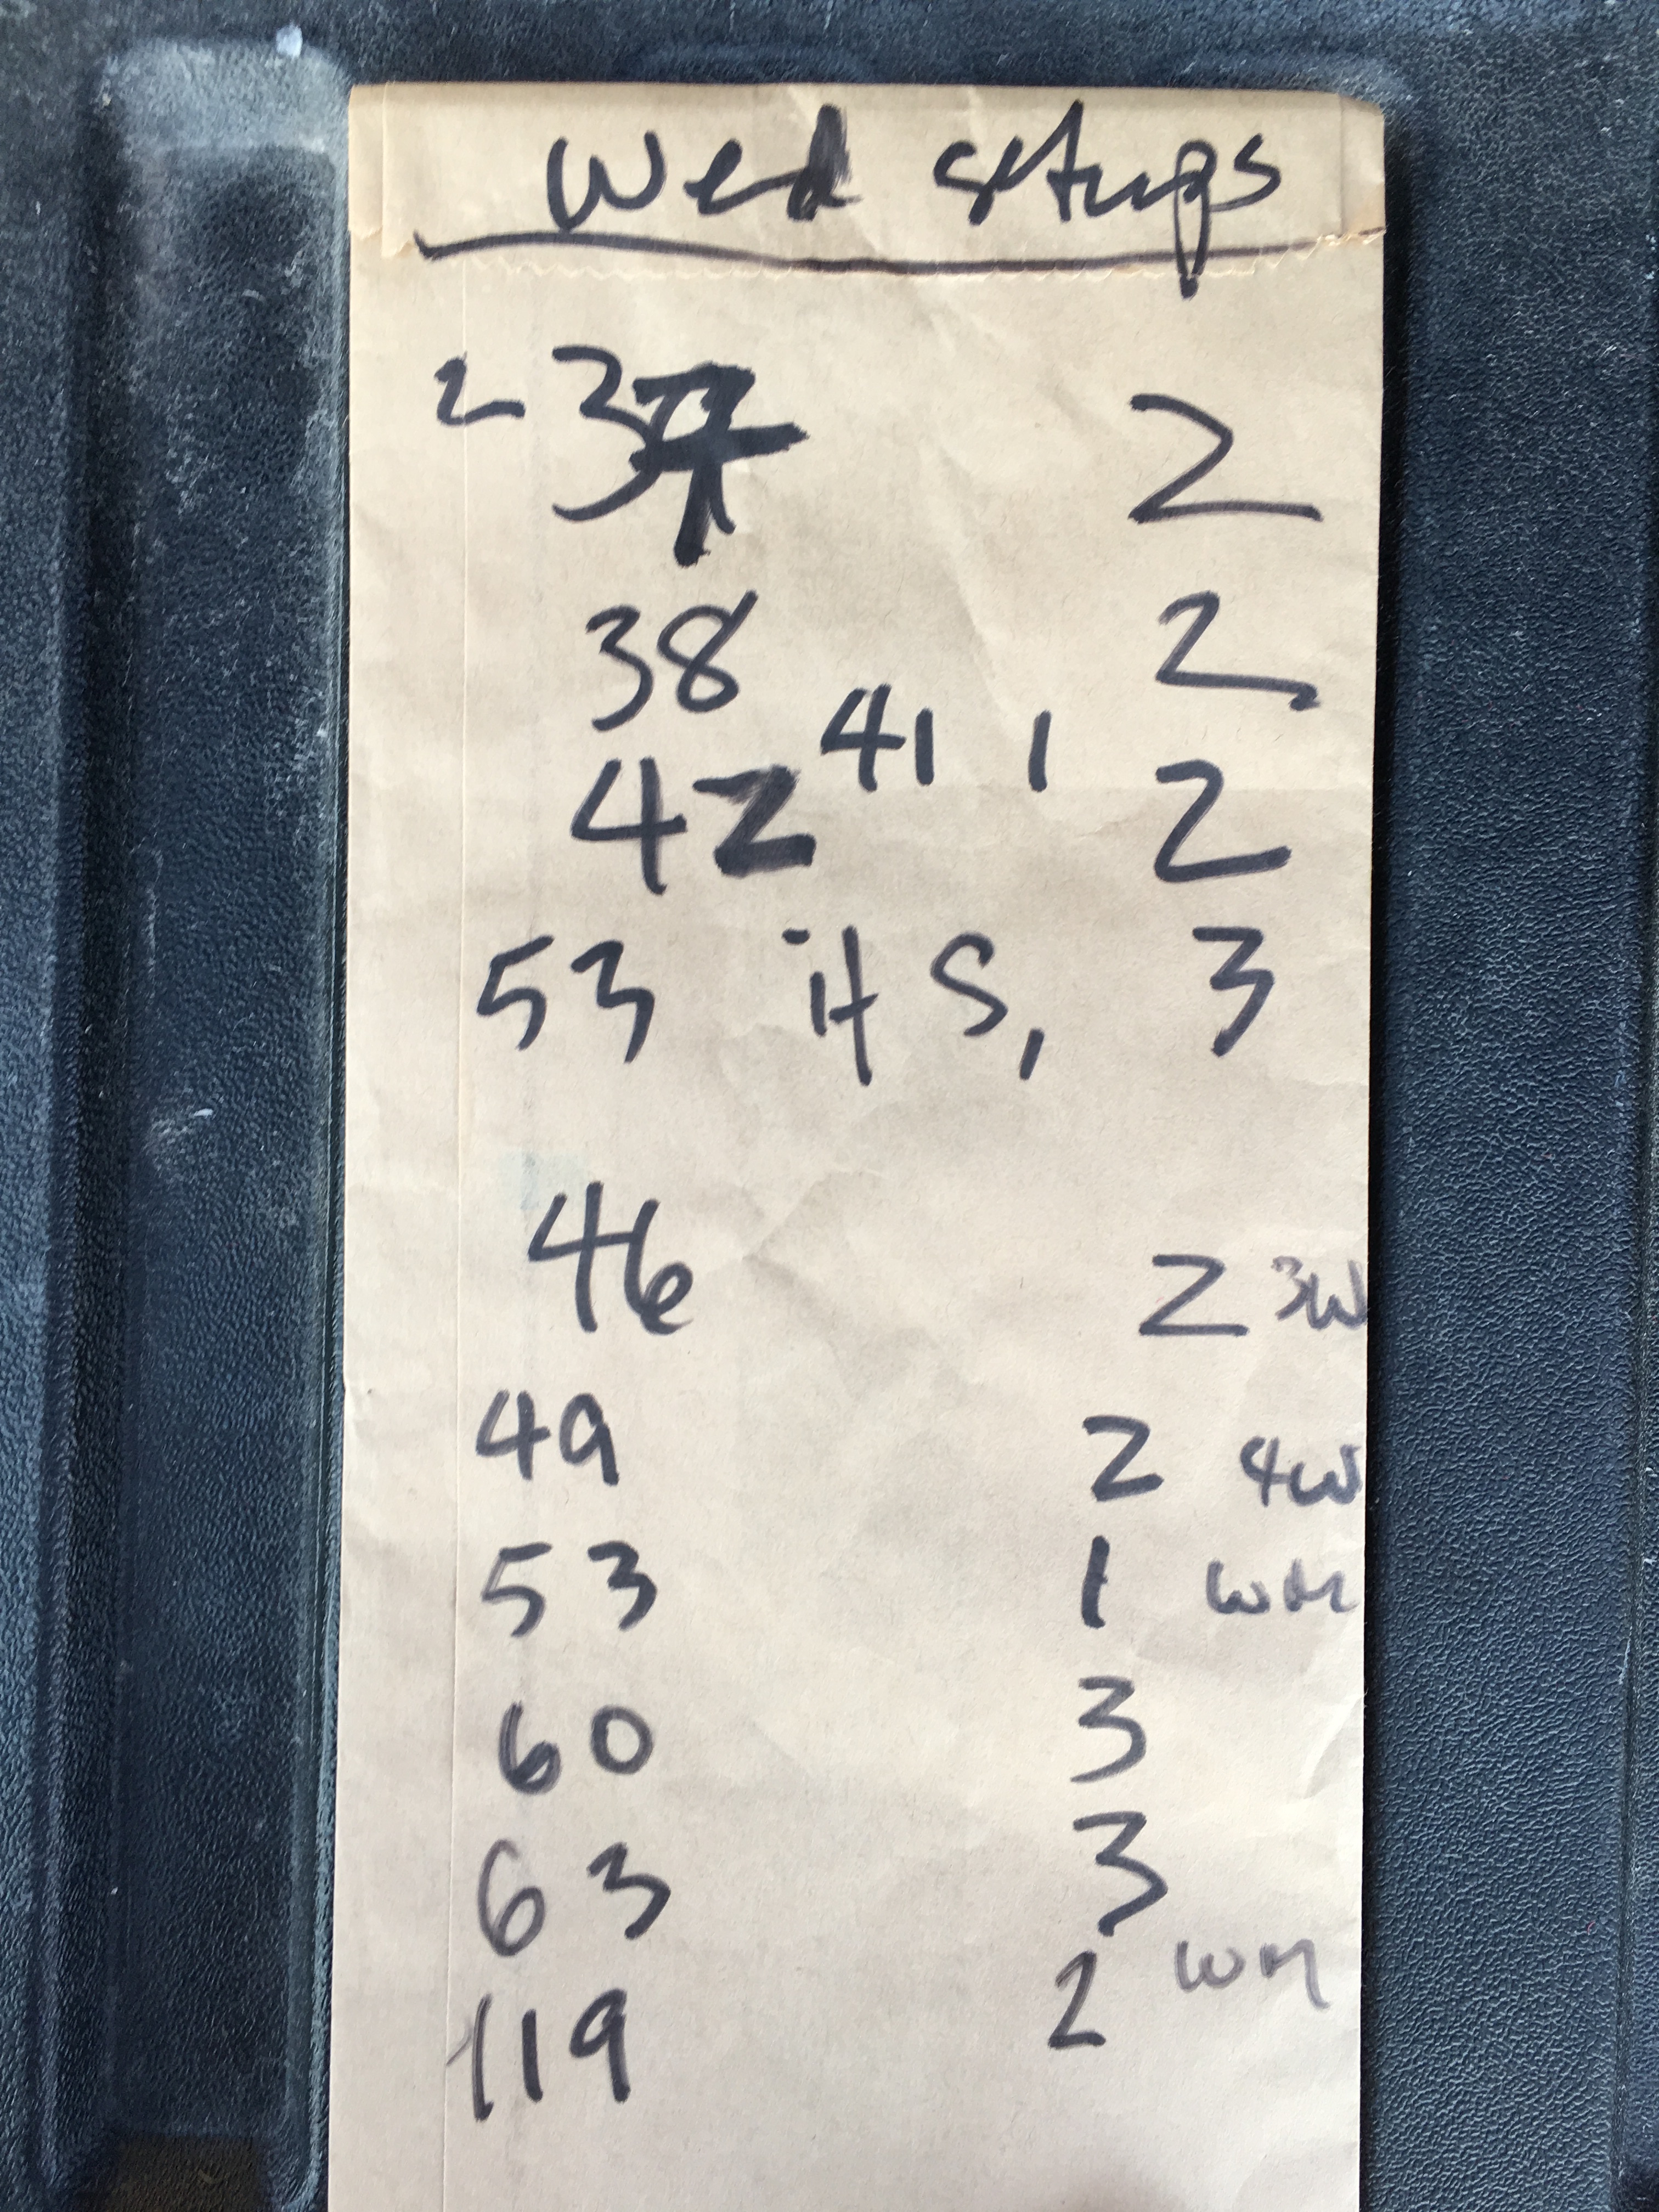 Wed setups
2 37 2
38 2
41 1
42 2
53 H S, 3
46 2 3W
49 2 4W
53 1 WM
60 3
63 3
119 2 WM